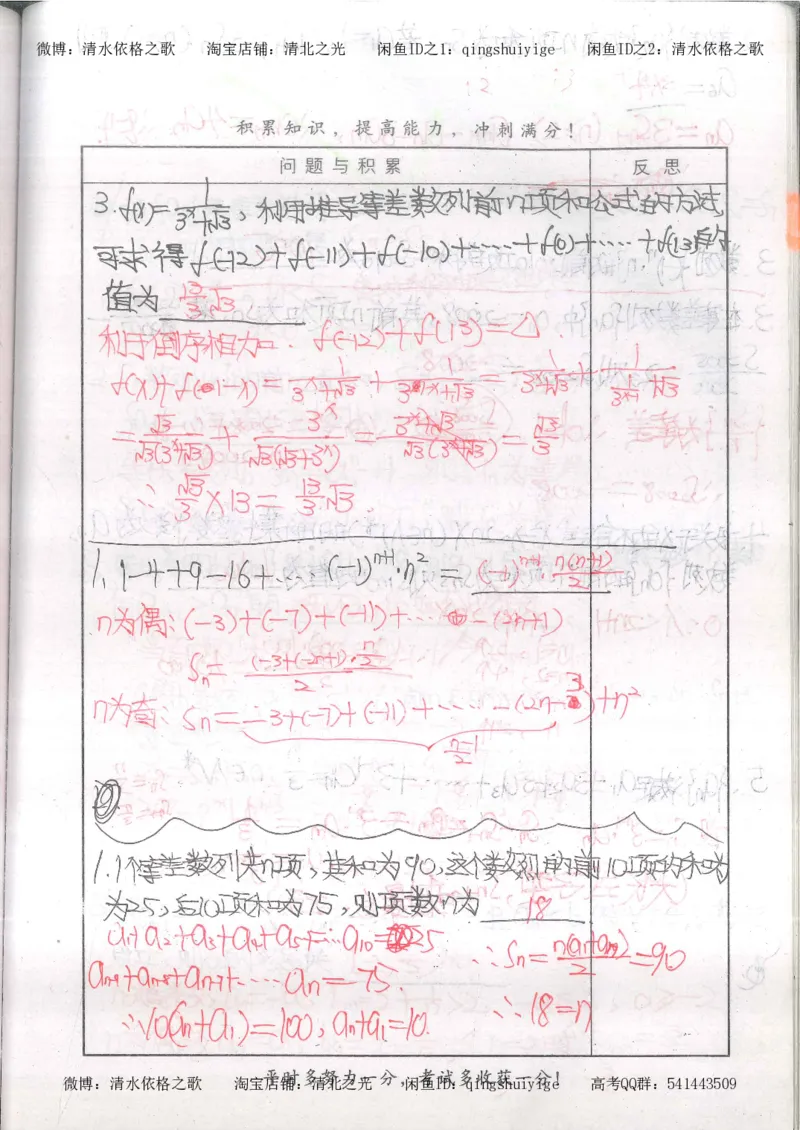 微博：清水依格之歌 淘宝店铺：清北之光 闲鱼ID之1：qingshuiyige 闲鱼ID之2：清水依格之歌
积累知识，提高能力，冲刺满分！
问题与积累 反思
3. f(x)=1/(3^x+√3)，利用推导等差数列前n项和公式的方法，
可求得f(-12)+f(-11)+f(-10)+……+f(0)+……+f(13)的
值为 13/3√3
利于倒序相加. f(-12)+f(13)=△.
f(x)+f(1-x)=1/(3^x+√3)+1/(3^(1-x)+√3)=1/(3^x+√3)+
=√3/(√3(3^x+√3))+3^x/(√3(√3+3^x))=(3^x+√3)/(√3(3^x+√3))=√3/3
∴ √3/3×13=13/3√3.
1. 1-4+9-16+…(-1)^(n+1)·n²=(-1)^(n+1)·n(n+1)/2
n为偶：(-3)+(-7)+(-11)+…-(2n+1)
Sn=(-3+(-2n+1)·n/2)/2
n为奇：Sn=-3+(-7)+(-11)+……-(2n-3)+n²
(n-1)/2
⑨
1. 1个等差数列共n项，其和为90，这个数列的前10项的和为
为25，后10项和为75，则项数n为 18
a1+a2+a3+a4+a5+…a10=25
∴Sn=n(a1+an)/2=90
an-9+an-8+an-7+……an=75.
∴18=n
∴10(an+a1)=100，an+a1=10.
平时多努力一分，考试多收获一分！
微博：清水依格之歌 淘宝店铺：清北之光 闲鱼ID：qingshuiyige 高考QQ群：541443509